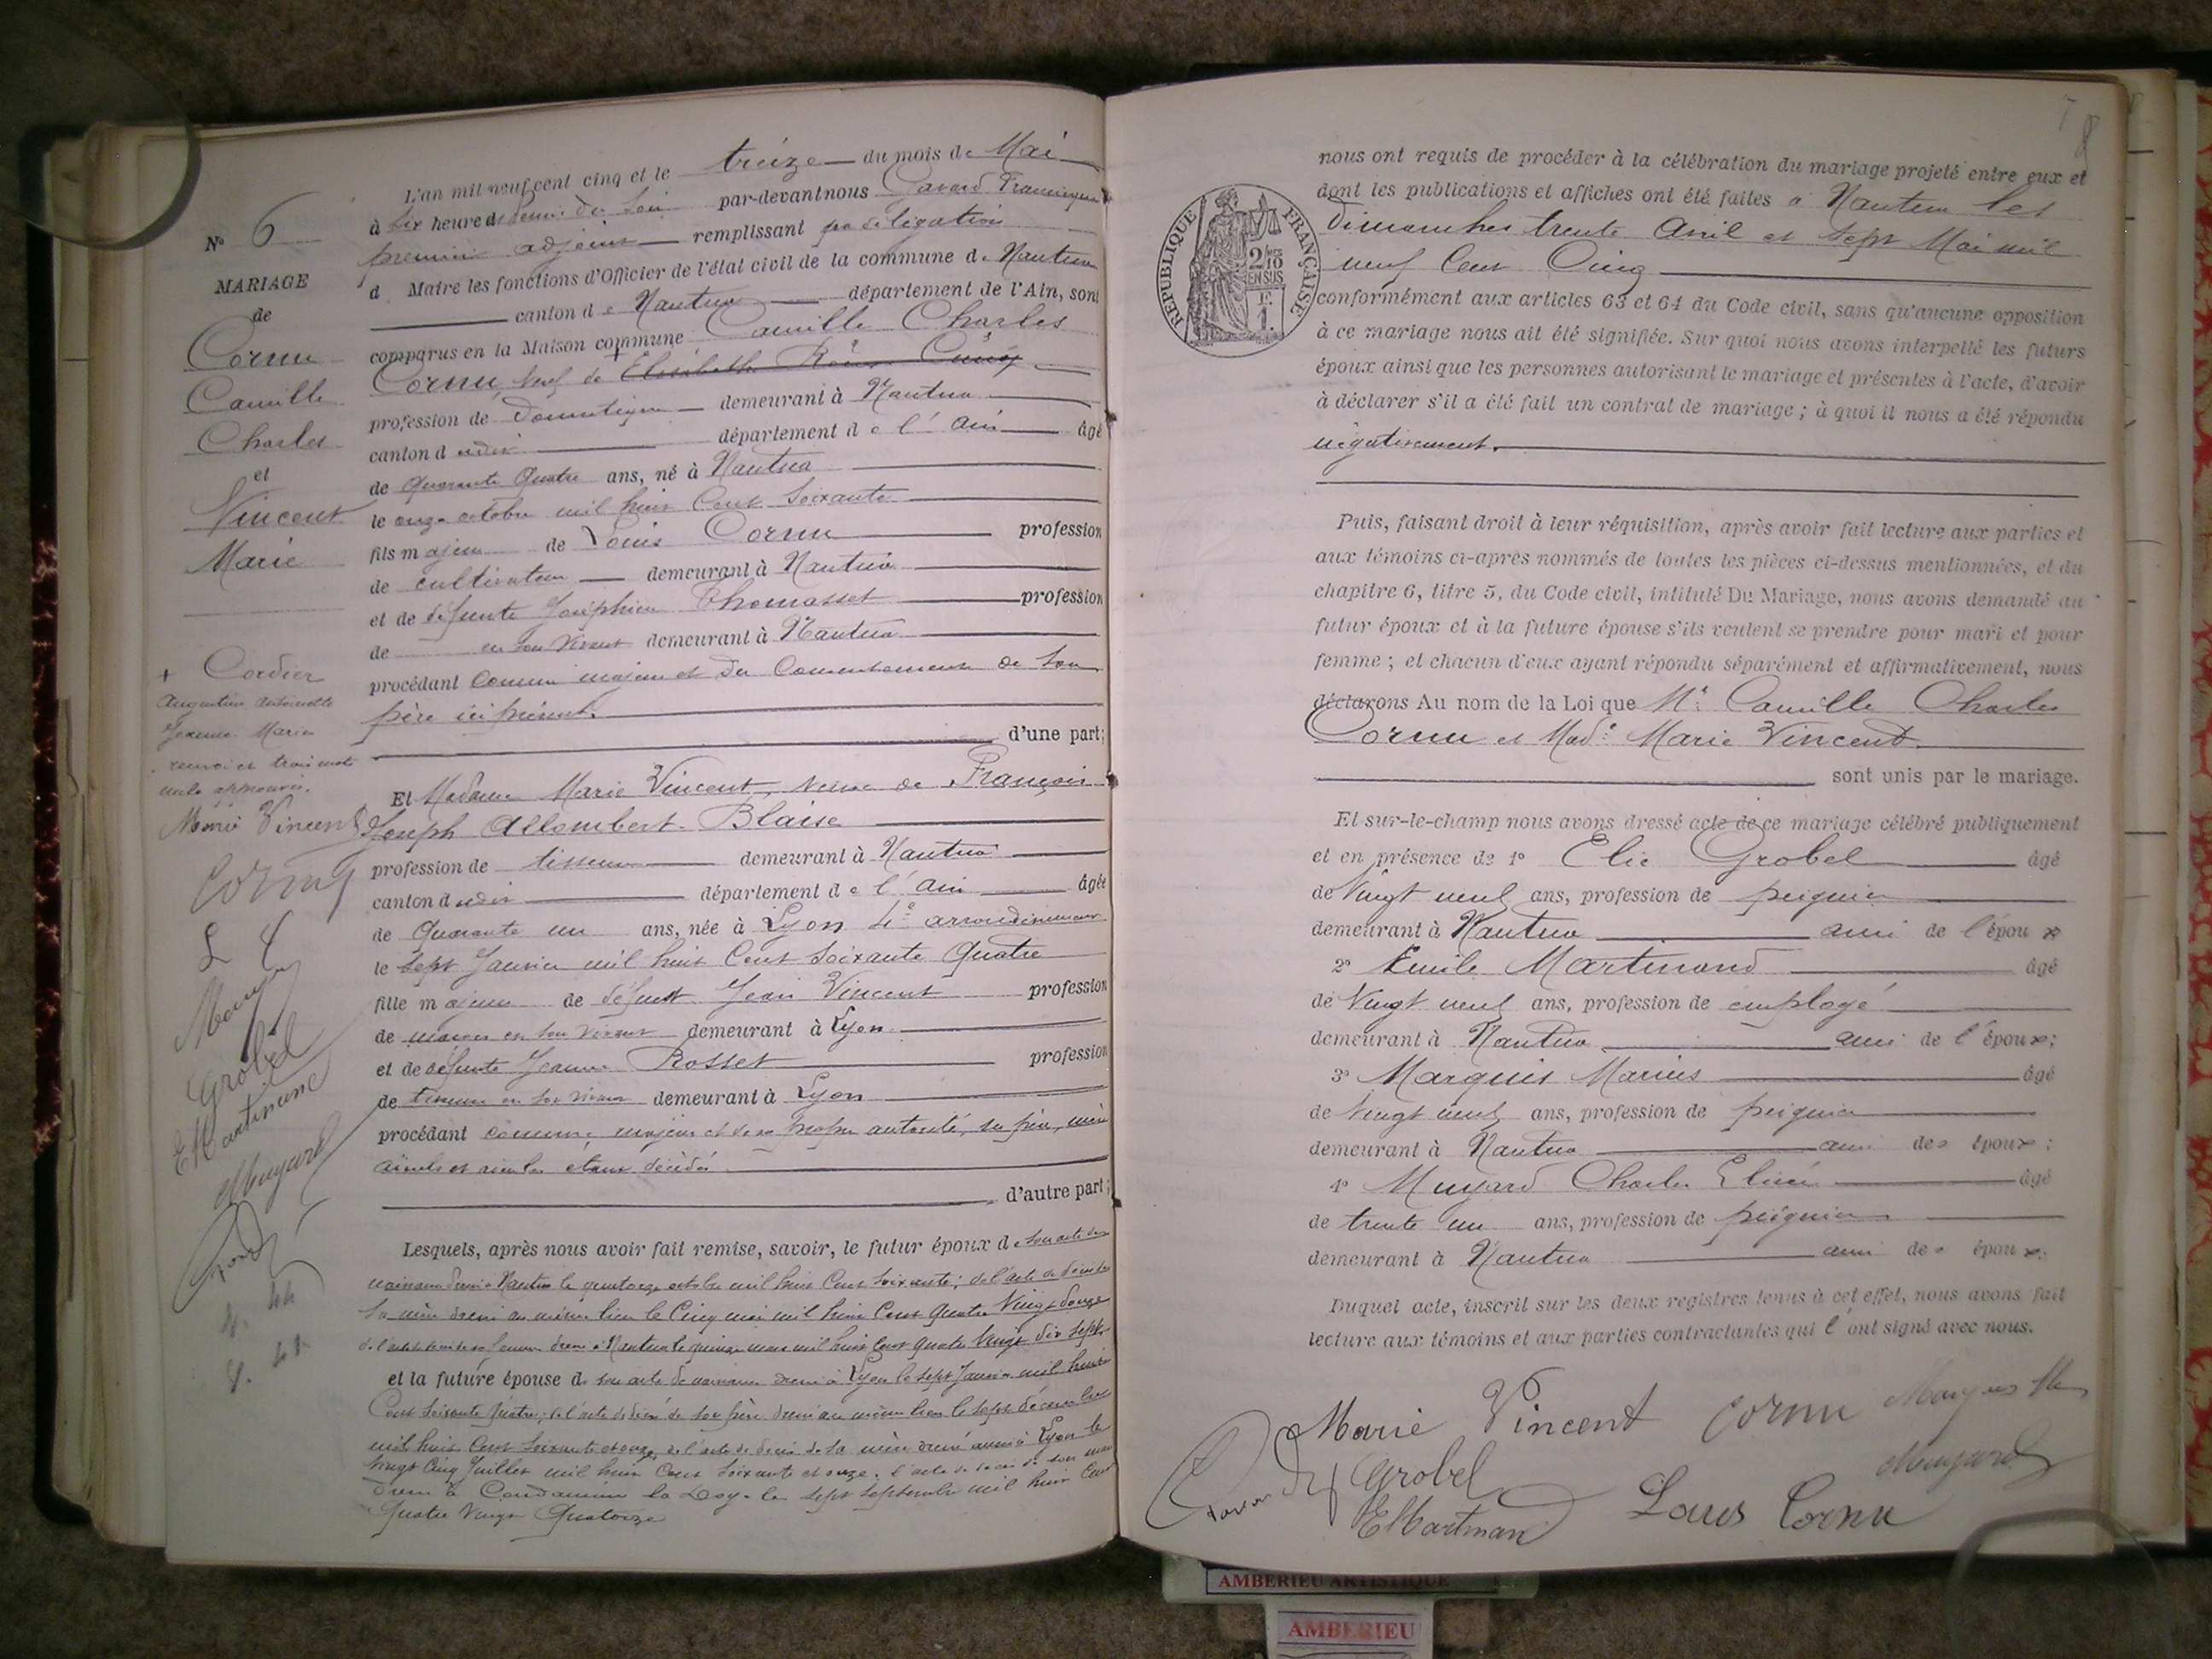 N° 6
MARIAGE
de
Cornu
Camille
Charles
et
Vincent
Marie
+ Cordier
Augustine Antoinette
Marie
renvoi et trois mots
nuls approuvés.
Marie Vincent
Cornu
L C
Grobel
E Martinand
Muyard
L'an mil neuf cent cinq et le treize du mois de Mai
à six heures demie du soir par-devant nous Gavard Francisque
premier adjoint remplissant par délégation
d Maire les fonctions d'Officier de l'état civil de la commune de Nantua
canton de Nantua département de l'Ain, sont
comparus en la Maison commune Camille Charles
Cornu veuf de + Elisabeth
profession de domestique demeurant à Nantua
canton dudit département de l'Ain âgé
de quarante quatre ans, né à Nantua
le onze octobre mil huit cent soixante
fils majeur de Louis Cornu profession
de cultivateur demeurant à Nantua
et de défunte Joséphine Thomasset profession
de en son vivant demeurant à Nantua
procédant comme majeur et du consentement de son
père ici présent.
d'une part;
Et Madame Marie Vincent, veuve de François
Joseph Allombert-Blaise
profession de tisseuse demeurant à Nantua
canton dudit département de l'Ain âgée
de quarante un ans, née à Lyon 4e arrondissement
le sept Janvier mil huit cent soixante quatre
fille majeure de défunt Jean Vincent profession
de maçon en son vivant demeurant à Lyon
et de défunte Jeanne Rosset profession
de tisseuse en son vivant demeurant à Lyon
procédant comme majeure et de sa propre autorité, ses père, mère
aïeuls et aïeules étant décédés
d'autre part;
Lesquels, après nous avoir fait remise, savoir, le futur époux de son acte de
naissance dressé à Nantua le quatorze octobre mil huit cent soixante; de l'acte de décès de
sa mère dressé au même lieu le cinq mai mil huit cent quatre vingt douze
de l'acte de décès de sa femme dressé à Nantua le quinze mars mil huit cent quatre vingt dix sept
et la future épouse de son acte de naissance dressé à Lyon le sept Janvier mil huit
cent soixante quatre, de l'acte de décès de son père dressé au même lieu le sept décembre
mil huit cent soixante et onze, de l'acte de décès de sa mère dressé aussi à Lyon le
vingt cinq Juillet mil huit cent soixante et onze. l'acte de décès de son mari
dressé à Condamine la Doye le sept septembre mil huit cent
quatre vingt quatorze
RÉPUBLIQUE FRANÇAISE
2/10
EN SUS
1 F.
nous ont requis de procéder à la célébration du mariage projeté entre eux et
dont les publications et affiches ont été faites à Nantua les
dimanches trente Avril et sept Mai mil
neuf cent cinq
conformément aux articles 63 et 64 du Code civil, sans qu'aucune opposition
à ce mariage nous ait été signifiée. Sur quoi nous avons interpellé les futurs
époux ainsi que les personnes autorisant le mariage et présentes à l'acte, d'avoir
à déclarer s'il a été fait un contrat de mariage; à quoi il nous a été répondu
négativement.
Puis, faisant droit à leur réquisition, après avoir fait lecture aux parties et
aux témoins ci-après nommés de toutes les pièces ci-dessus mentionnées, et du
chapitre 6, titre 5, du Code civil, intitulé Du Mariage, nous avons demandé au
futur époux et à la future épouse s'ils veulent se prendre pour mari et pour
femme; et chacun d'eux ayant répondu séparément et affirmativement, nous
déclarons Au nom de la Loi que Mr Camille Charles
Cornu et Made Marie Vincent
sont unis par le mariage.
Et sur-le-champ nous avons dressé acte de ce mariage célébré publiquement
et en présence de 1° Elie Grobel âgé
de vingt neuf ans, profession de peignier
demeurant à Nantua ami de l'époux
2° Emile Martinand âgé
de vingt neuf ans, profession de employé
demeurant à Nantua ami de l'époux;
3° Marquis Marius âgé
de vingt neuf ans, profession de peignier
demeurant à Nantua ami des époux;
4° Muyard Charles Elisée âgé
de trente un ans, profession de peignier
demeurant à Nantua ami des époux;
Duquel acte, inscrit sur les deux registres tenus à cet effet, nous avons fait
lecture aux témoins et aux parties contractantes qui l'ont signé avec nous.
Marie Vincent Cornu Marquis
Grobel Muyard
E Martinand Louis Cornu
AMBERIEU ARTISTIQUE
AMBERIEU